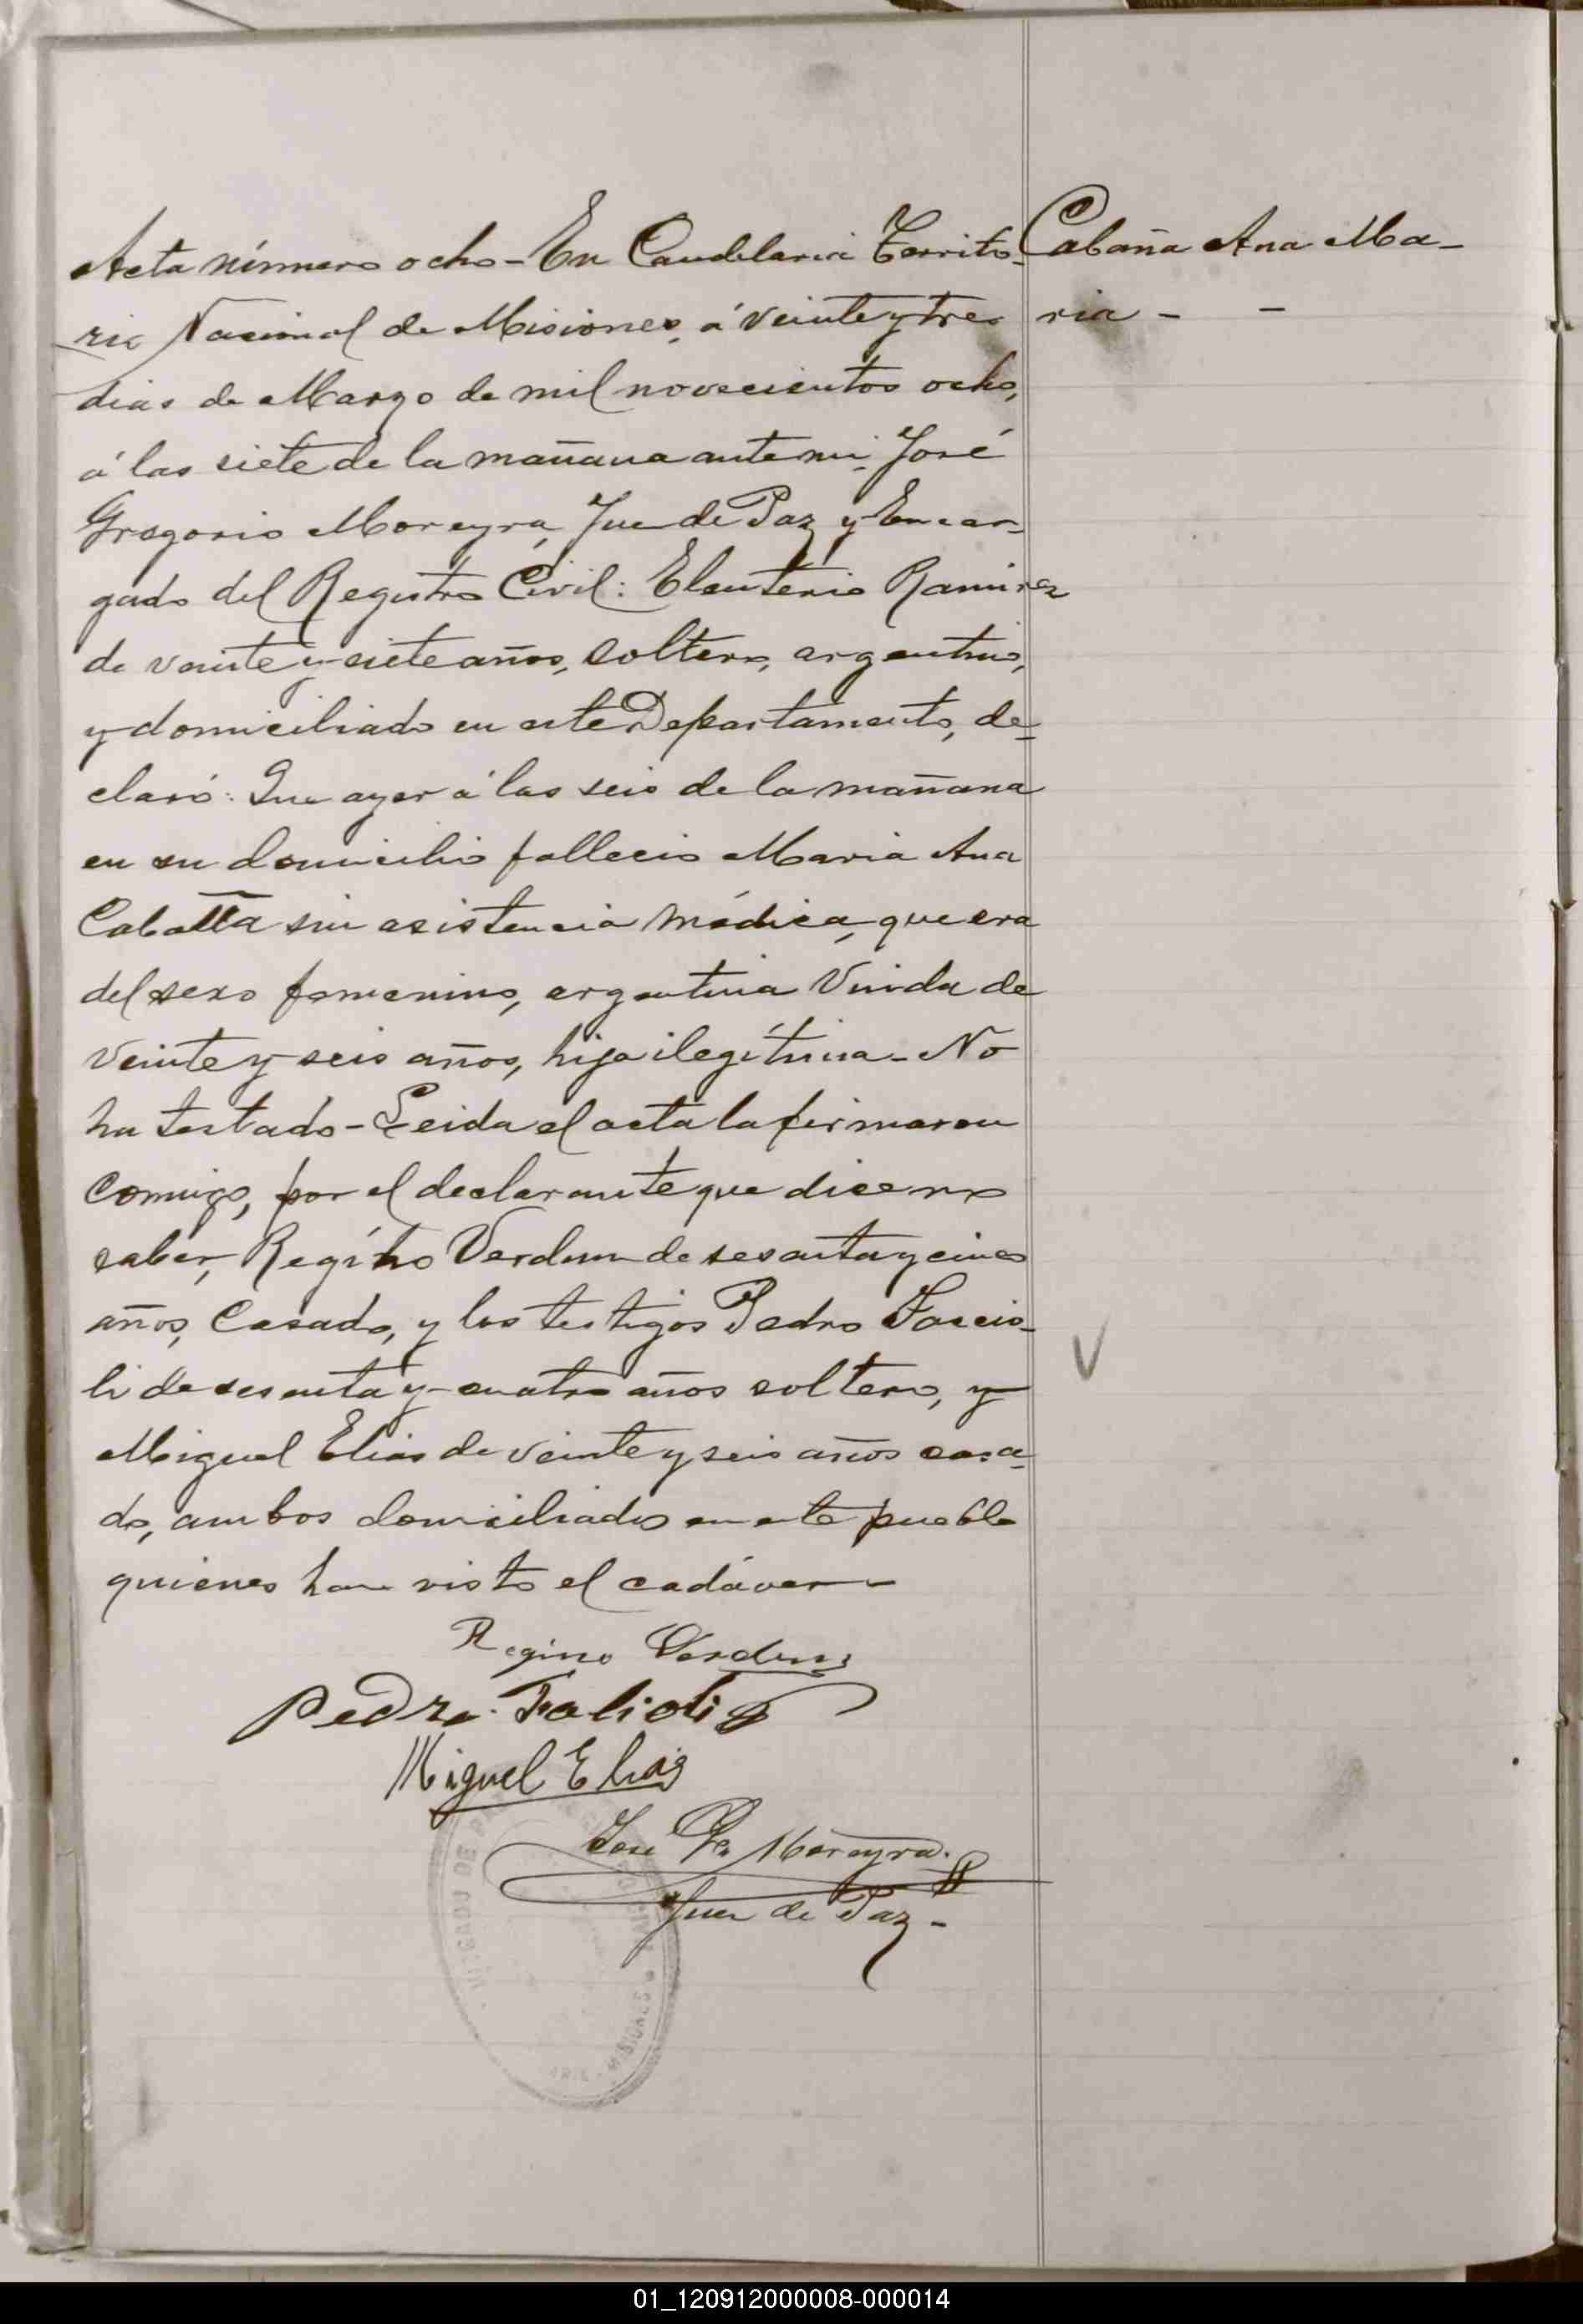 Acta número ocho - En Candelaria Territo-
rio Nacional de Misiones, á veinte y tres
dias de Marzo de mil novecientos ocho,
á las siete de la mañana ante mi, José
Gregorio Moreyra, Juez de Paz y Encar-
gado del Registro Civil: Eleuterio Ramirez
de veinte y siete años, soltero, argentino,
y domiciliado en este Departamento, de-
claró: Que ayer á las seis de la mañana
en su domicilio fallecio Maria Ana
Cabaña sin asistencia médica, que era
del sexo femenino, argentina Viuda de
veinte y seis años, hija ilegítima - No
ha testado - Leida el acta la firmaron
comigo, por el declarante que dice no
saber, Regino Verdun de sesenta y cinco
años, Casado, y los testigos Pedro Faccio-
li de sesenta y cuatro años soltero, y
Miguel Elias de veinte y seis años casa-
do, ambos domiciliados en este pueblo
quienes han visto el cadáver -
Regino Verdun
Pedro Falioli
Miguel Elias
José G. Moreyra.
Juez de Paz -
Cabaña Ana Ma-
ria - -
JUZGADO DE
MISIONES
01_120912000008-000014